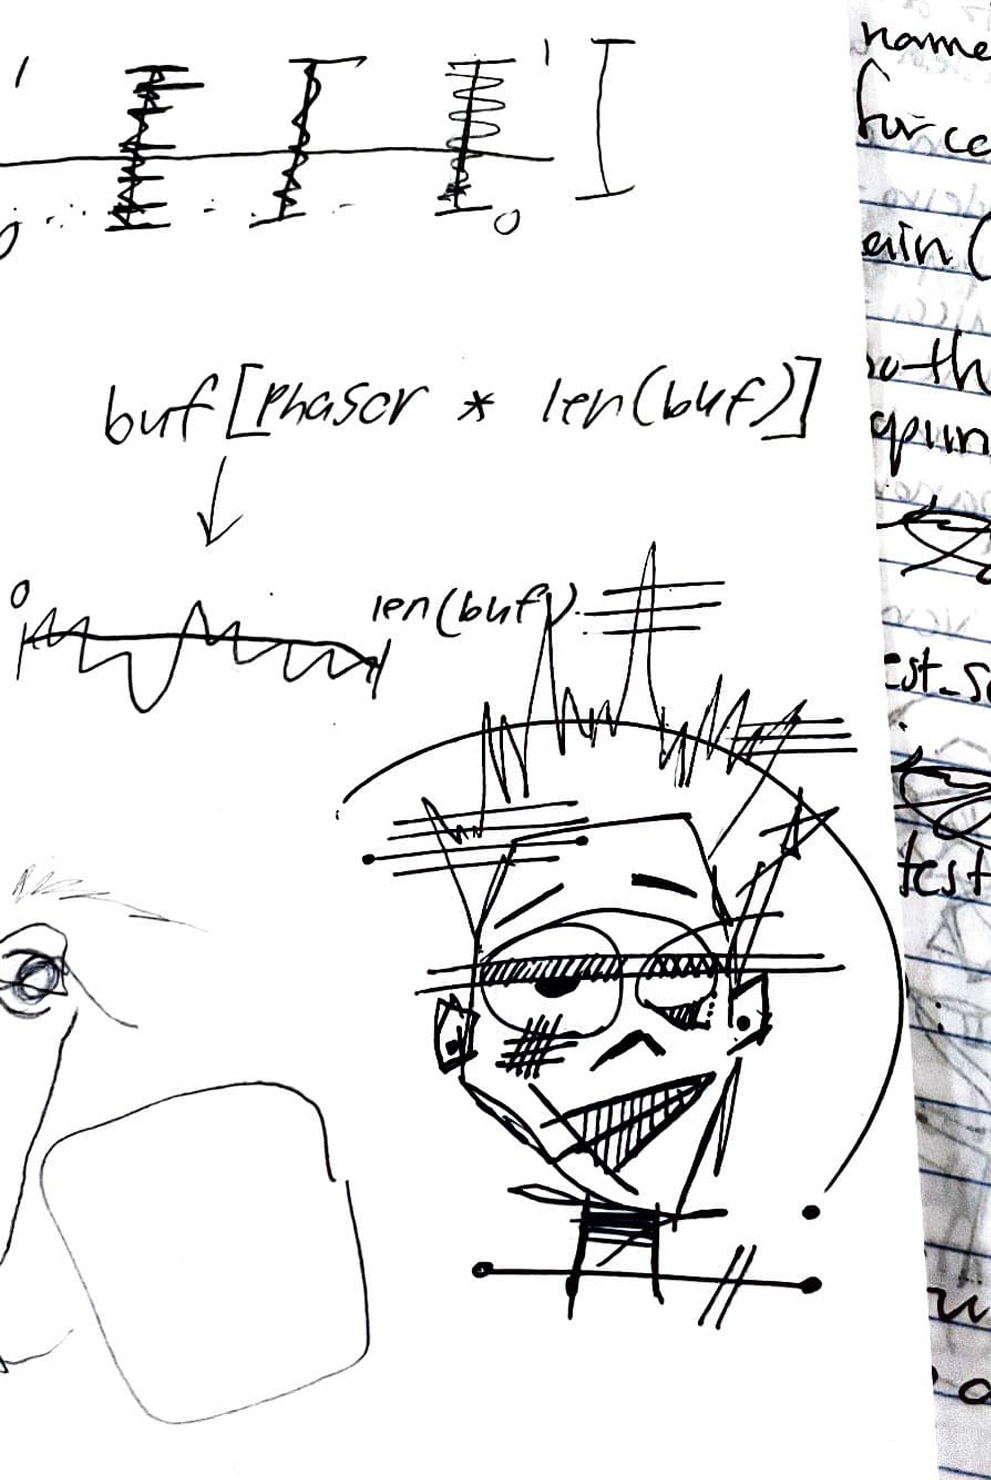 1 1
0 0
buf[phasor * len(buf)]
0 len(buf)
name
force
ain(
oth
est_s
test